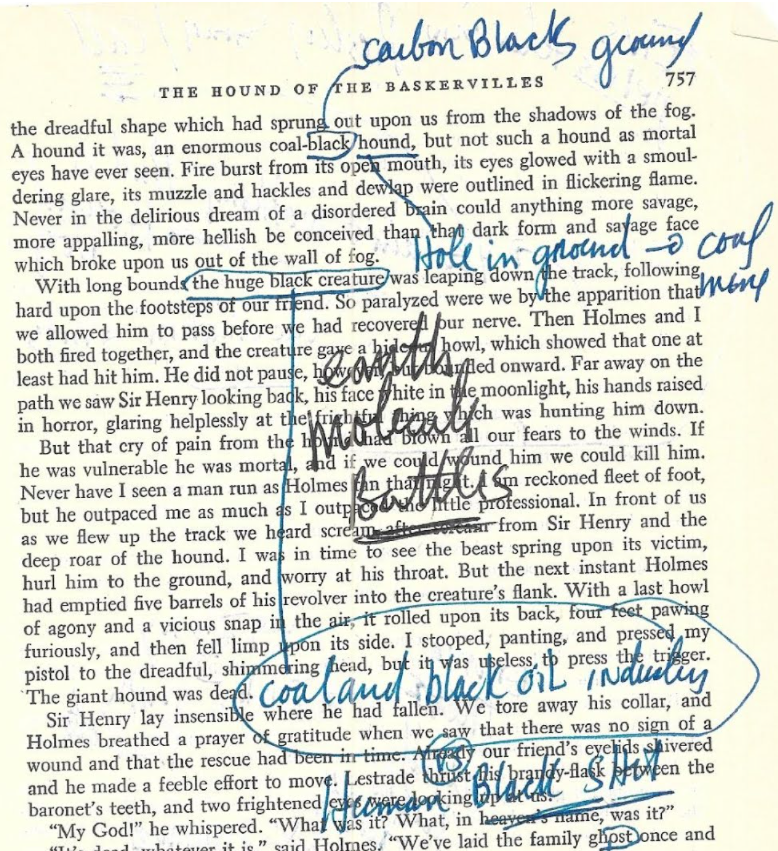 carbon Blacks ground
THE HOUND OF THE BASKERVILLES 757
the dreadful shape which had sprung out upon us from the shadows of the fog.
A hound it was, an enormous coal-black hound, but not such a hound as mortal
eyes have ever seen. Fire burst from its open mouth, its eyes glowed with a smoul-
dering glare, its muzzle and hackles and dewlap were outlined in flickering flame.
Never in the delirious dream of a disordered brain could anything more savage,
more appalling, more hellish be conceived than that dark form and savage face
which broke upon us out of the wall of fog.
Hole in ground → coal
mine
With long bounds the huge black creature was leaping down the track, following
hard upon the footsteps of our friend. So paralyzed were we by the apparition that
we allowed him to pass before we had recovered our nerve. Then Holmes and I
both fired together, and the creature gave a hideous howl, which showed that one at
least had hit him. He did not pause, however, but bounded onward. Far away on the
path we saw Sir Henry looking back, his face white in the moonlight, his hands raised
in horror, glaring helplessly at the frightful thing which was hunting him down.
earth
But that cry of pain from the hound had blown all our fears to the winds. If
he was vulnerable he was mortal, and if we could wound him we could kill him.
Never have I seen a man run as Holmes ran that night. I am reckoned fleet of foot,
but he outpaced me as much as I outpaced the little professional. In front of us
battles
as we flew up the track we heard scream after scream from Sir Henry and the
deep roar of the hound. I was in time to see the beast spring upon its victim,
hurl him to the ground, and worry at his throat. But the next instant Holmes
had emptied five barrels of his revolver into the creature's flank. With a last howl
of agony and a vicious snap in the air, it rolled upon its back, four feet pawing
furiously, and then fell limp upon its side. I stooped, panting, and pressed my
pistol to the dreadful, shimmering head, but it was useless to press the trigger.
The giant hound was dead.
coal and black oil industry
Sir Henry lay insensible where he had fallen. We tore away his collar, and
Holmes breathed a prayer of gratitude when we saw that there was no sign of a
wound and that the rescue had been in time. Already our friend's eyelids shivered
VS
and he made a feeble effort to move. Lestrade thrust his brandy-flask between the
baronet's teeth, and two frightened eyes were looking up at us.
Human Black SHIT
"My God!" he whispered. "What was it? What, in heaven's name, was it?"
"It's dead, whatever it is," said Holmes. "We've laid the family ghost once and